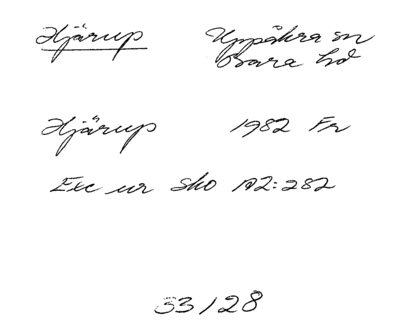 Hjärup Uppåkra sn
Bara hd
Hjärup 1982 Fr
Exc ur Sko A2:282
33/28